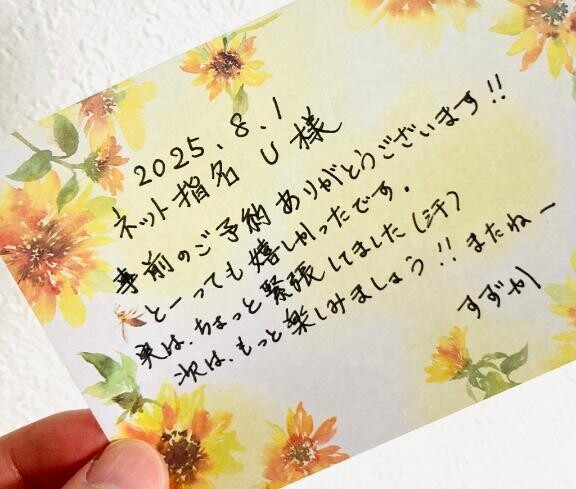 2025.8.1
ネット指名 U様
事前のご予約ありがとうございます!!
とーっても嬉しかったです。
実は、ちょっと緊張してました(汗)
次は、もっと楽しみましょう!! またねー
すずか